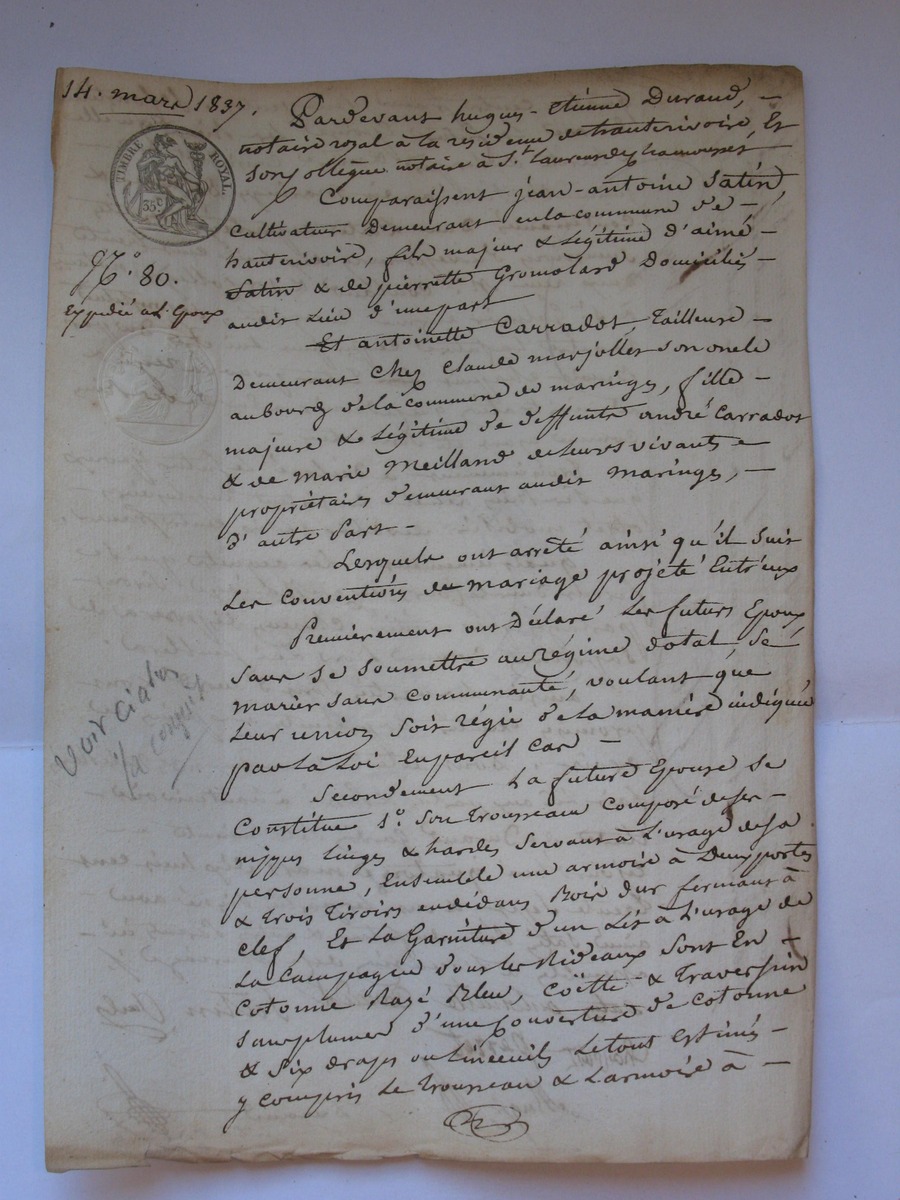 14. mars 1837.
TIMBRE ROYAL.
35c
N.o 80.
Expédié à l'Epoux
Voir
Pardevant hugues-Etienne Durand,
notaire royal à la résidence de hauterivoire, Et
son Collègue notaire à St. Laurent de Chamousset
Comparaissent jean-antoine Satin,
Cultivateur Demeurant en la commune de
hauterivoire, fils majeur & Légitime d'aimé
Satin & de pierrette Gromolard Domiciliés
audit Lieu d'une part
Et antoinette Carradot, Tailleuse
Demeurant chez Claude marjollet son oncle
au bourg de la commune de maringes, fille
majeure & Légitime de deffunts andré Carradot
& de Marie Meilland de leurs vivants
propriétaires demeurant audit Maringes,
d'autre Part
Lesquels ont arrêté ainsi qu'il suit
Les Conventions du mariage projeté Entr'eux
Premièrement ont Déclaré Les futurs Epoux,
Sans se Soumettre au régime dotal, se
marier sans Communauté, voulant que
Leur union soit régie de la manière indiquée
par La Loi En pareil Cas
Secondement La future Epouse se
Constitue 1.o Son Trousseau Composé de ses
nippes Linges & hardes servant à L'usage de sa
personne, Ensemble une armoire à Deux portes
& trois Tiroirs endédans Bois dur fermant à
Clef, Et La Garniture d'un Lit à L'usage de
La Campagne dont les Rideaux sont En
Cotonne Rayé Bleu, Coëtte & Traversin
sans plumes d'une Couverture de Cotonne
& six draps ou Linceuils Le tout Estimés
y compris Le Trousseau & L'armoire à